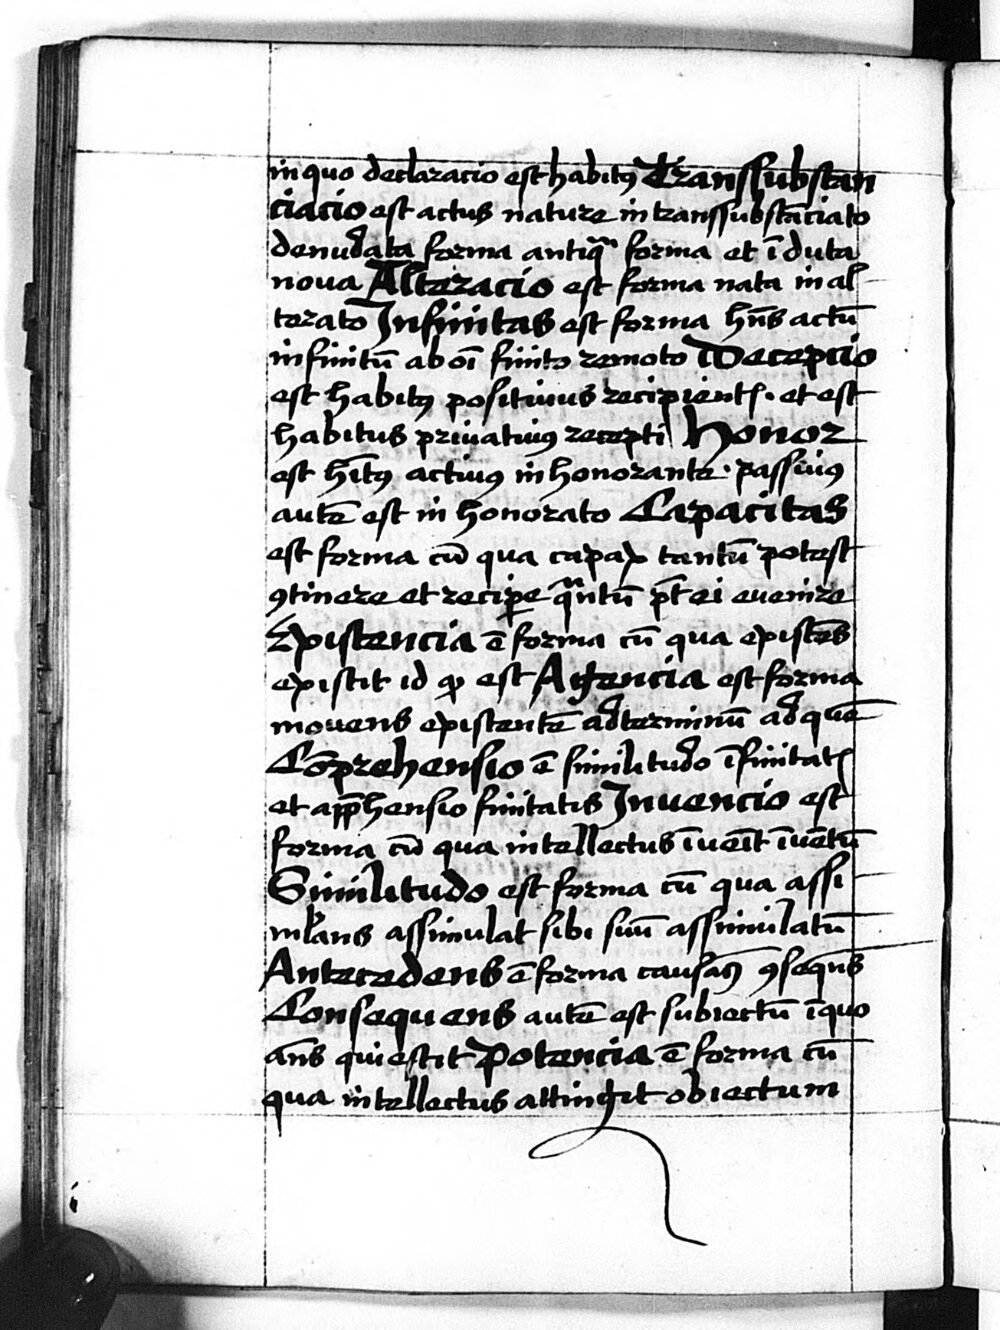 in quo declaracio est habitꝰ Transsubstan
ciacio est actus nature in transsubstāciato
denudata forma antiqᵃ forma et īduta
noua Alteracio est forma nata in al
terato Infinitas est forma hn̄s actū
infinitū ab oī finito remoto Decepcio
est habitꝰ positiuus recipientꝭ · et est
habitus priuatiuꝰ recepti Honor
est hītꝰ actiuꝰ in honorante · passiuꝰ
autē est in honorato Capacitas
est forma cū qua capax tantū potest
ꝯtinere et recipe qᵃntū pt̄ ei euenire
Existencia ē forma cū qua existēs
existit id qꝫ est Agencia est forma
mouens existentē ad terminū ad quē
Cōprehensio ē similitudo īfinitatꝭ
et app̄hensio finitatis Inuencio est
forma cū qua intellectus īueīt īuētū
Similitudo est forma cū qua assi
mlans assimulat sibi suū assimulatū
Antecedens ē forma causās ꝯseqn̄s
Consequens autē est subiectū ī quo
an̄s quiestit Potencia ē forma cū
qua intellectus attingit obiectum